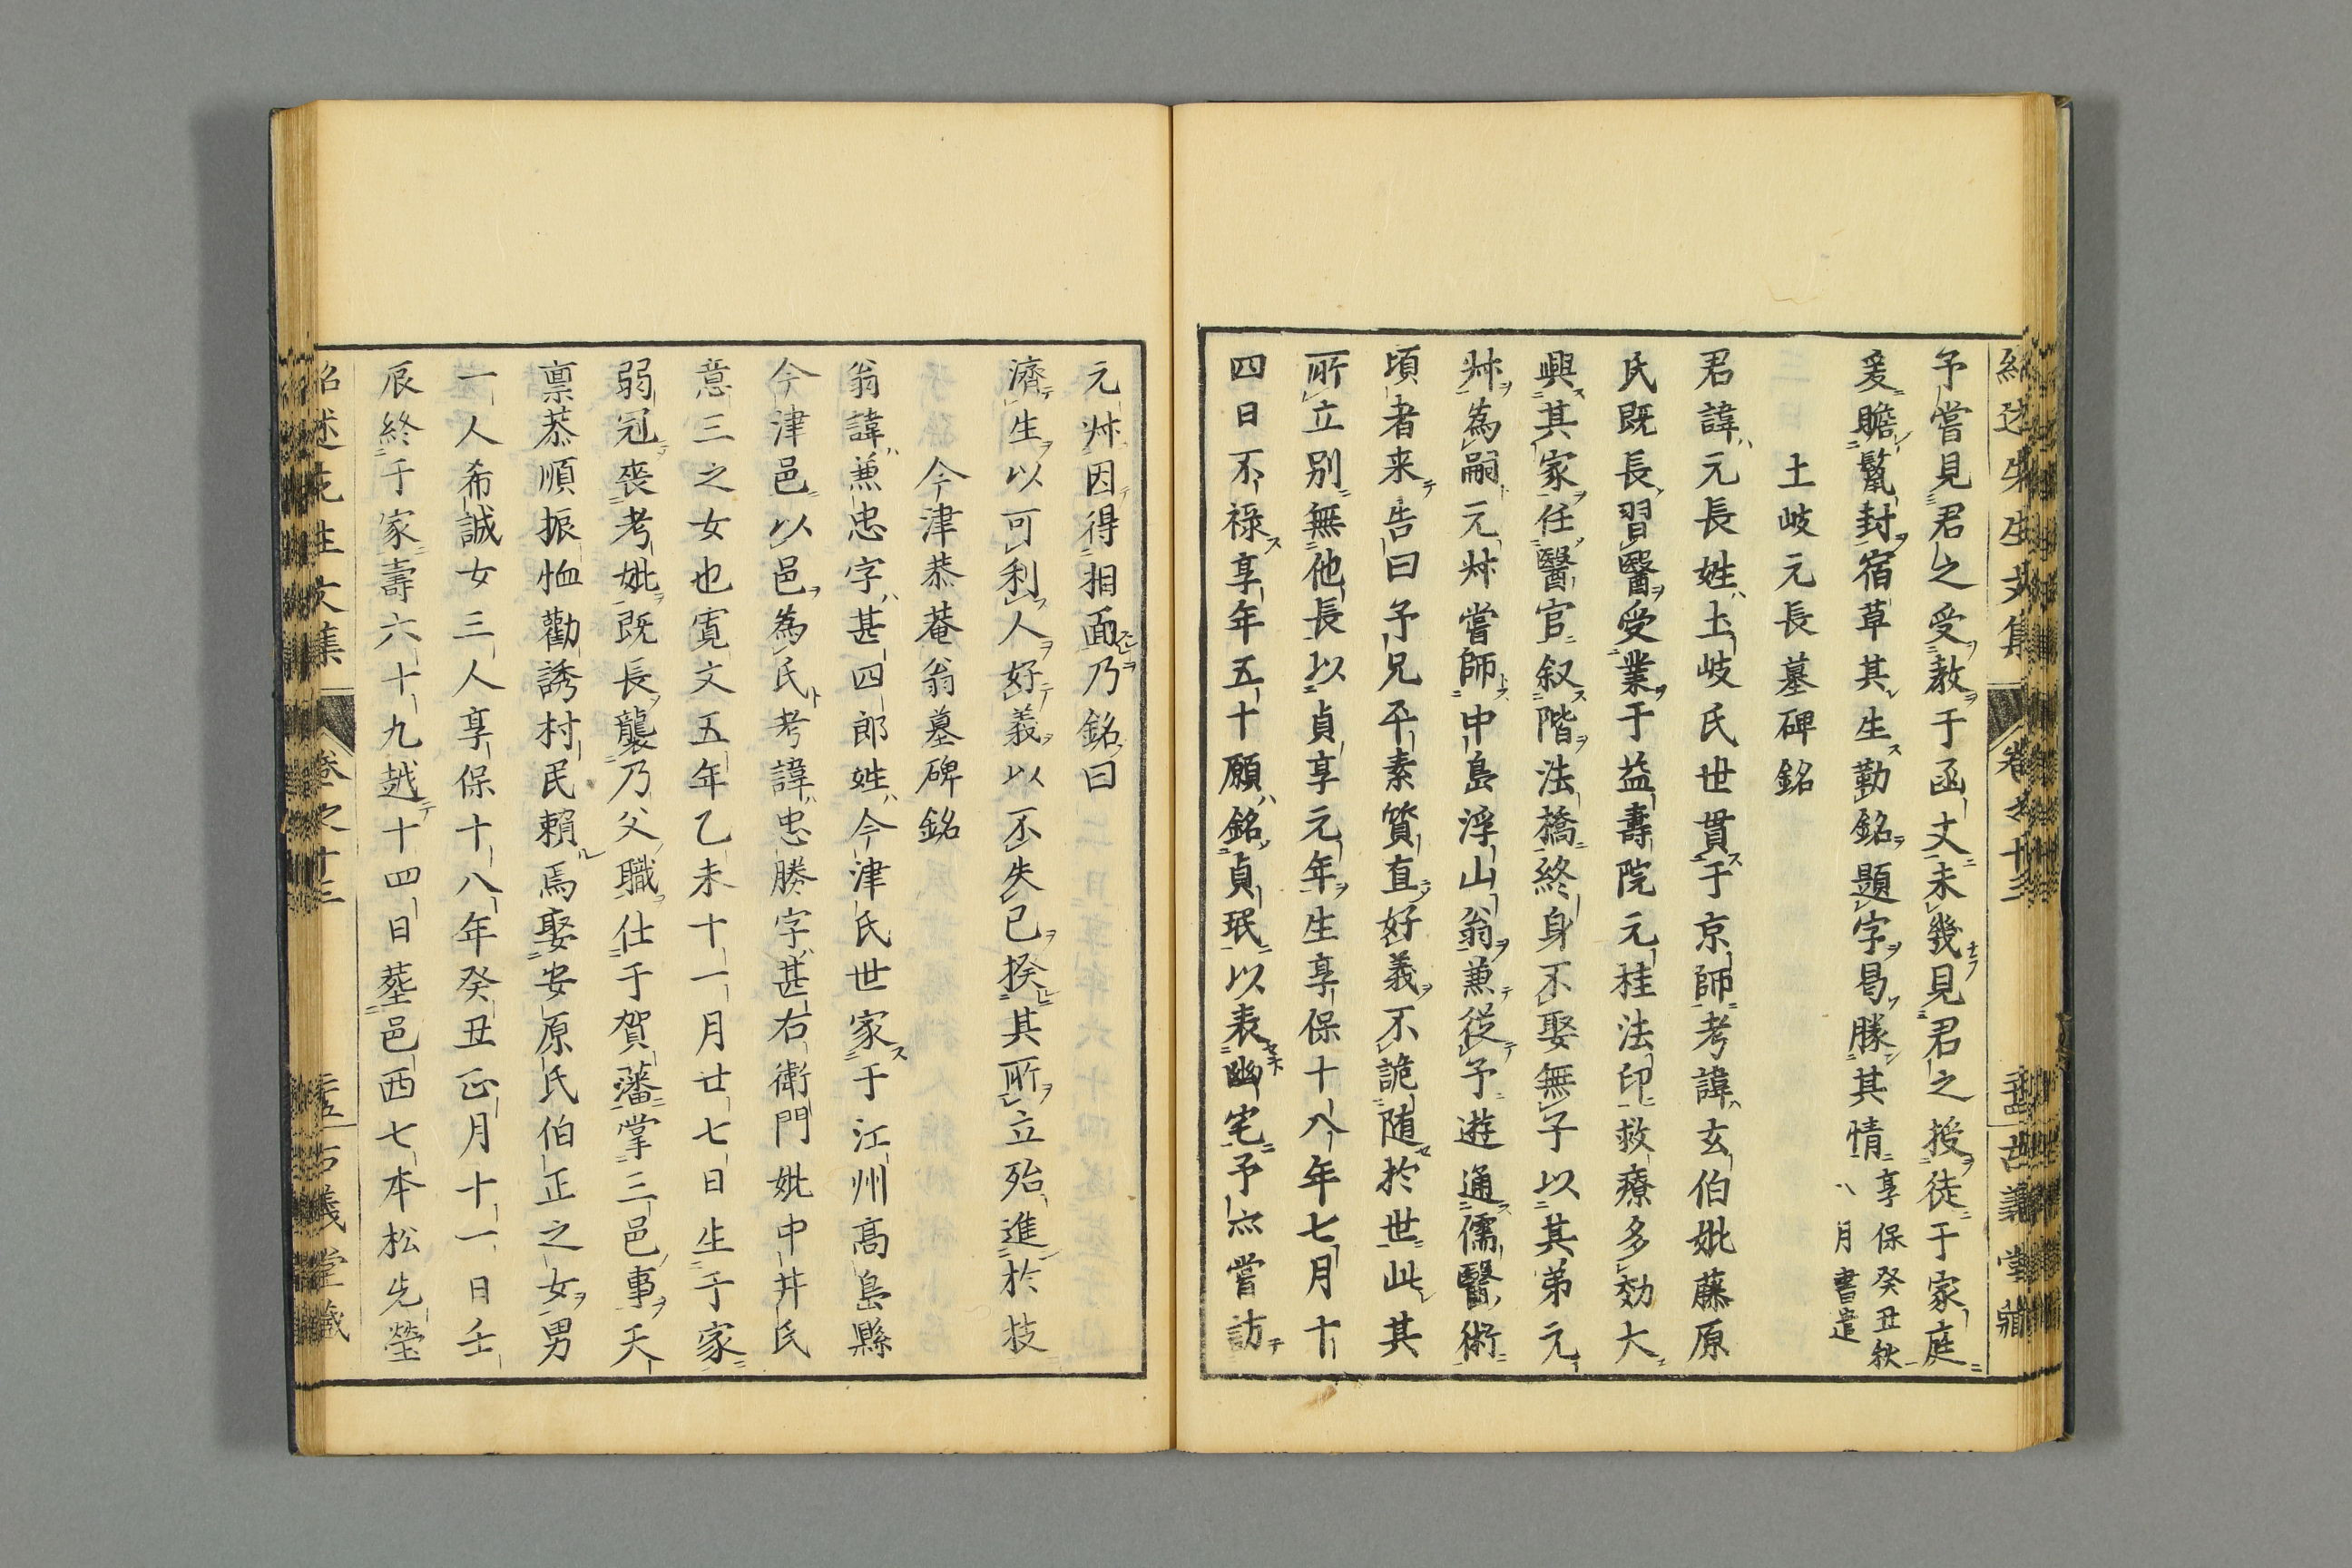 紹述先生文集　卷之十三　古義堂藏
予嘗見君之受教于函丈未幾見君之授徒于家庭
爰瞻鬣封宿草其生勒銘題字曷勝其情享保癸丑秋八月書遣
土岐元長墓碑銘
君諱元長姓土岐氏世貫于京師考諱玄伯妣藤原
氏既長習醫受業于益壽院元桂法印救療多効大
興其家任醫官叙階法橋終身不娶無子以其弟元
牀為嗣元牀嘗師中島浮山翁兼從予遊通儒醫術
頃者来告曰予兄平素質直好義不詭随於世此其
所立别無他長以貞享元年生享保十八年七月十
四日不禄享年五十願銘貞珉以表幽宅予亦嘗訪
元牀因得相面乃銘曰
濟生以可利人好義以不失已揆其所立殆進於技
今津恭菴翁墓碑銘
翁諱兼忠字甚四郎姓今津氏世家于江州高島縣
今津邑以邑為氏考諱忠勝字甚右衛門妣中井氏
意三之女也寛文五年乙未十一月廿七日生于家
弱冠喪考妣既長襲乃父職仕于賀藩掌三邑事天
禀恭順振恤勸誘村民賴焉娶安原氏伯正之女男
一人希誠女三人享保十八年癸丑正月十一日壬
辰終于家壽六十九越十四日葬邑西七本松先塋
紹述先生文集　卷之十三　古義堂藏